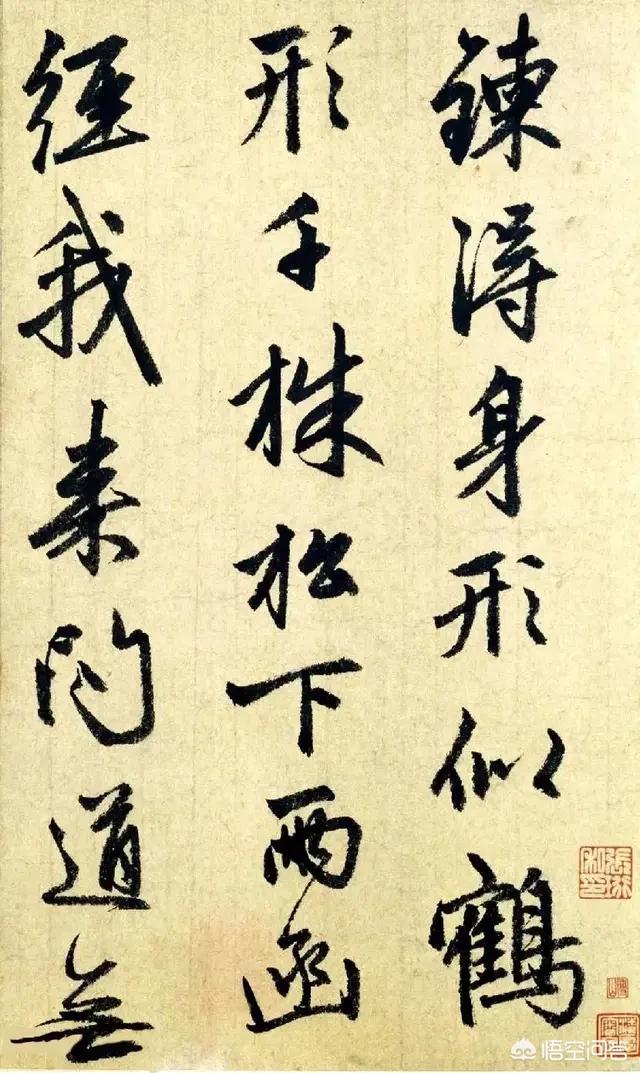 鍊得身形似鶴
形千株松下兩函
經我來問道無
悟空问答